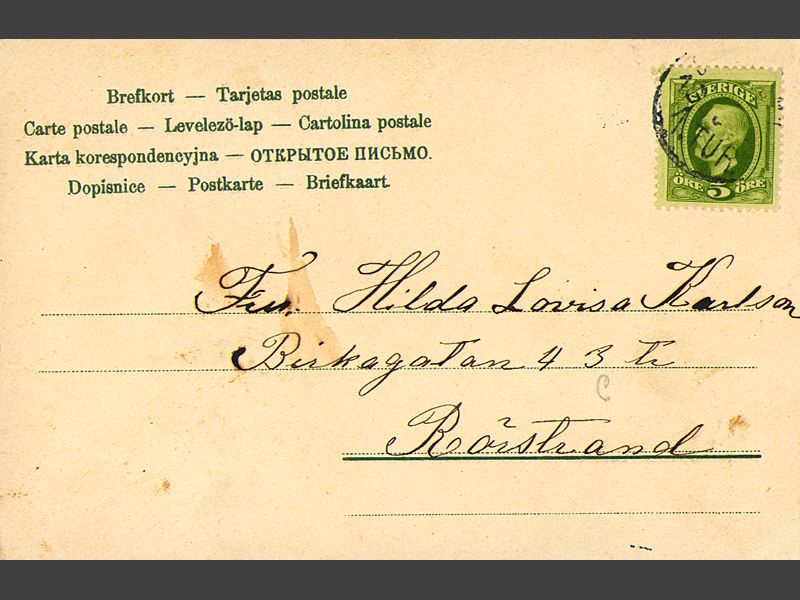 Brefkort — Tarjetas postale
Carte postale — Levelezö-lap — Cartolina postale
Karta korespondencyjna — ОТКРЫТОЕ ПИСЬМО.
Dopisnice — Postkarte — Briefkaart.
SVERIGE
ÖRE 5 ÖRE
Fru. Hilda Lovisa Karlson
Birkagatan 4 3 tr
Rörstrand